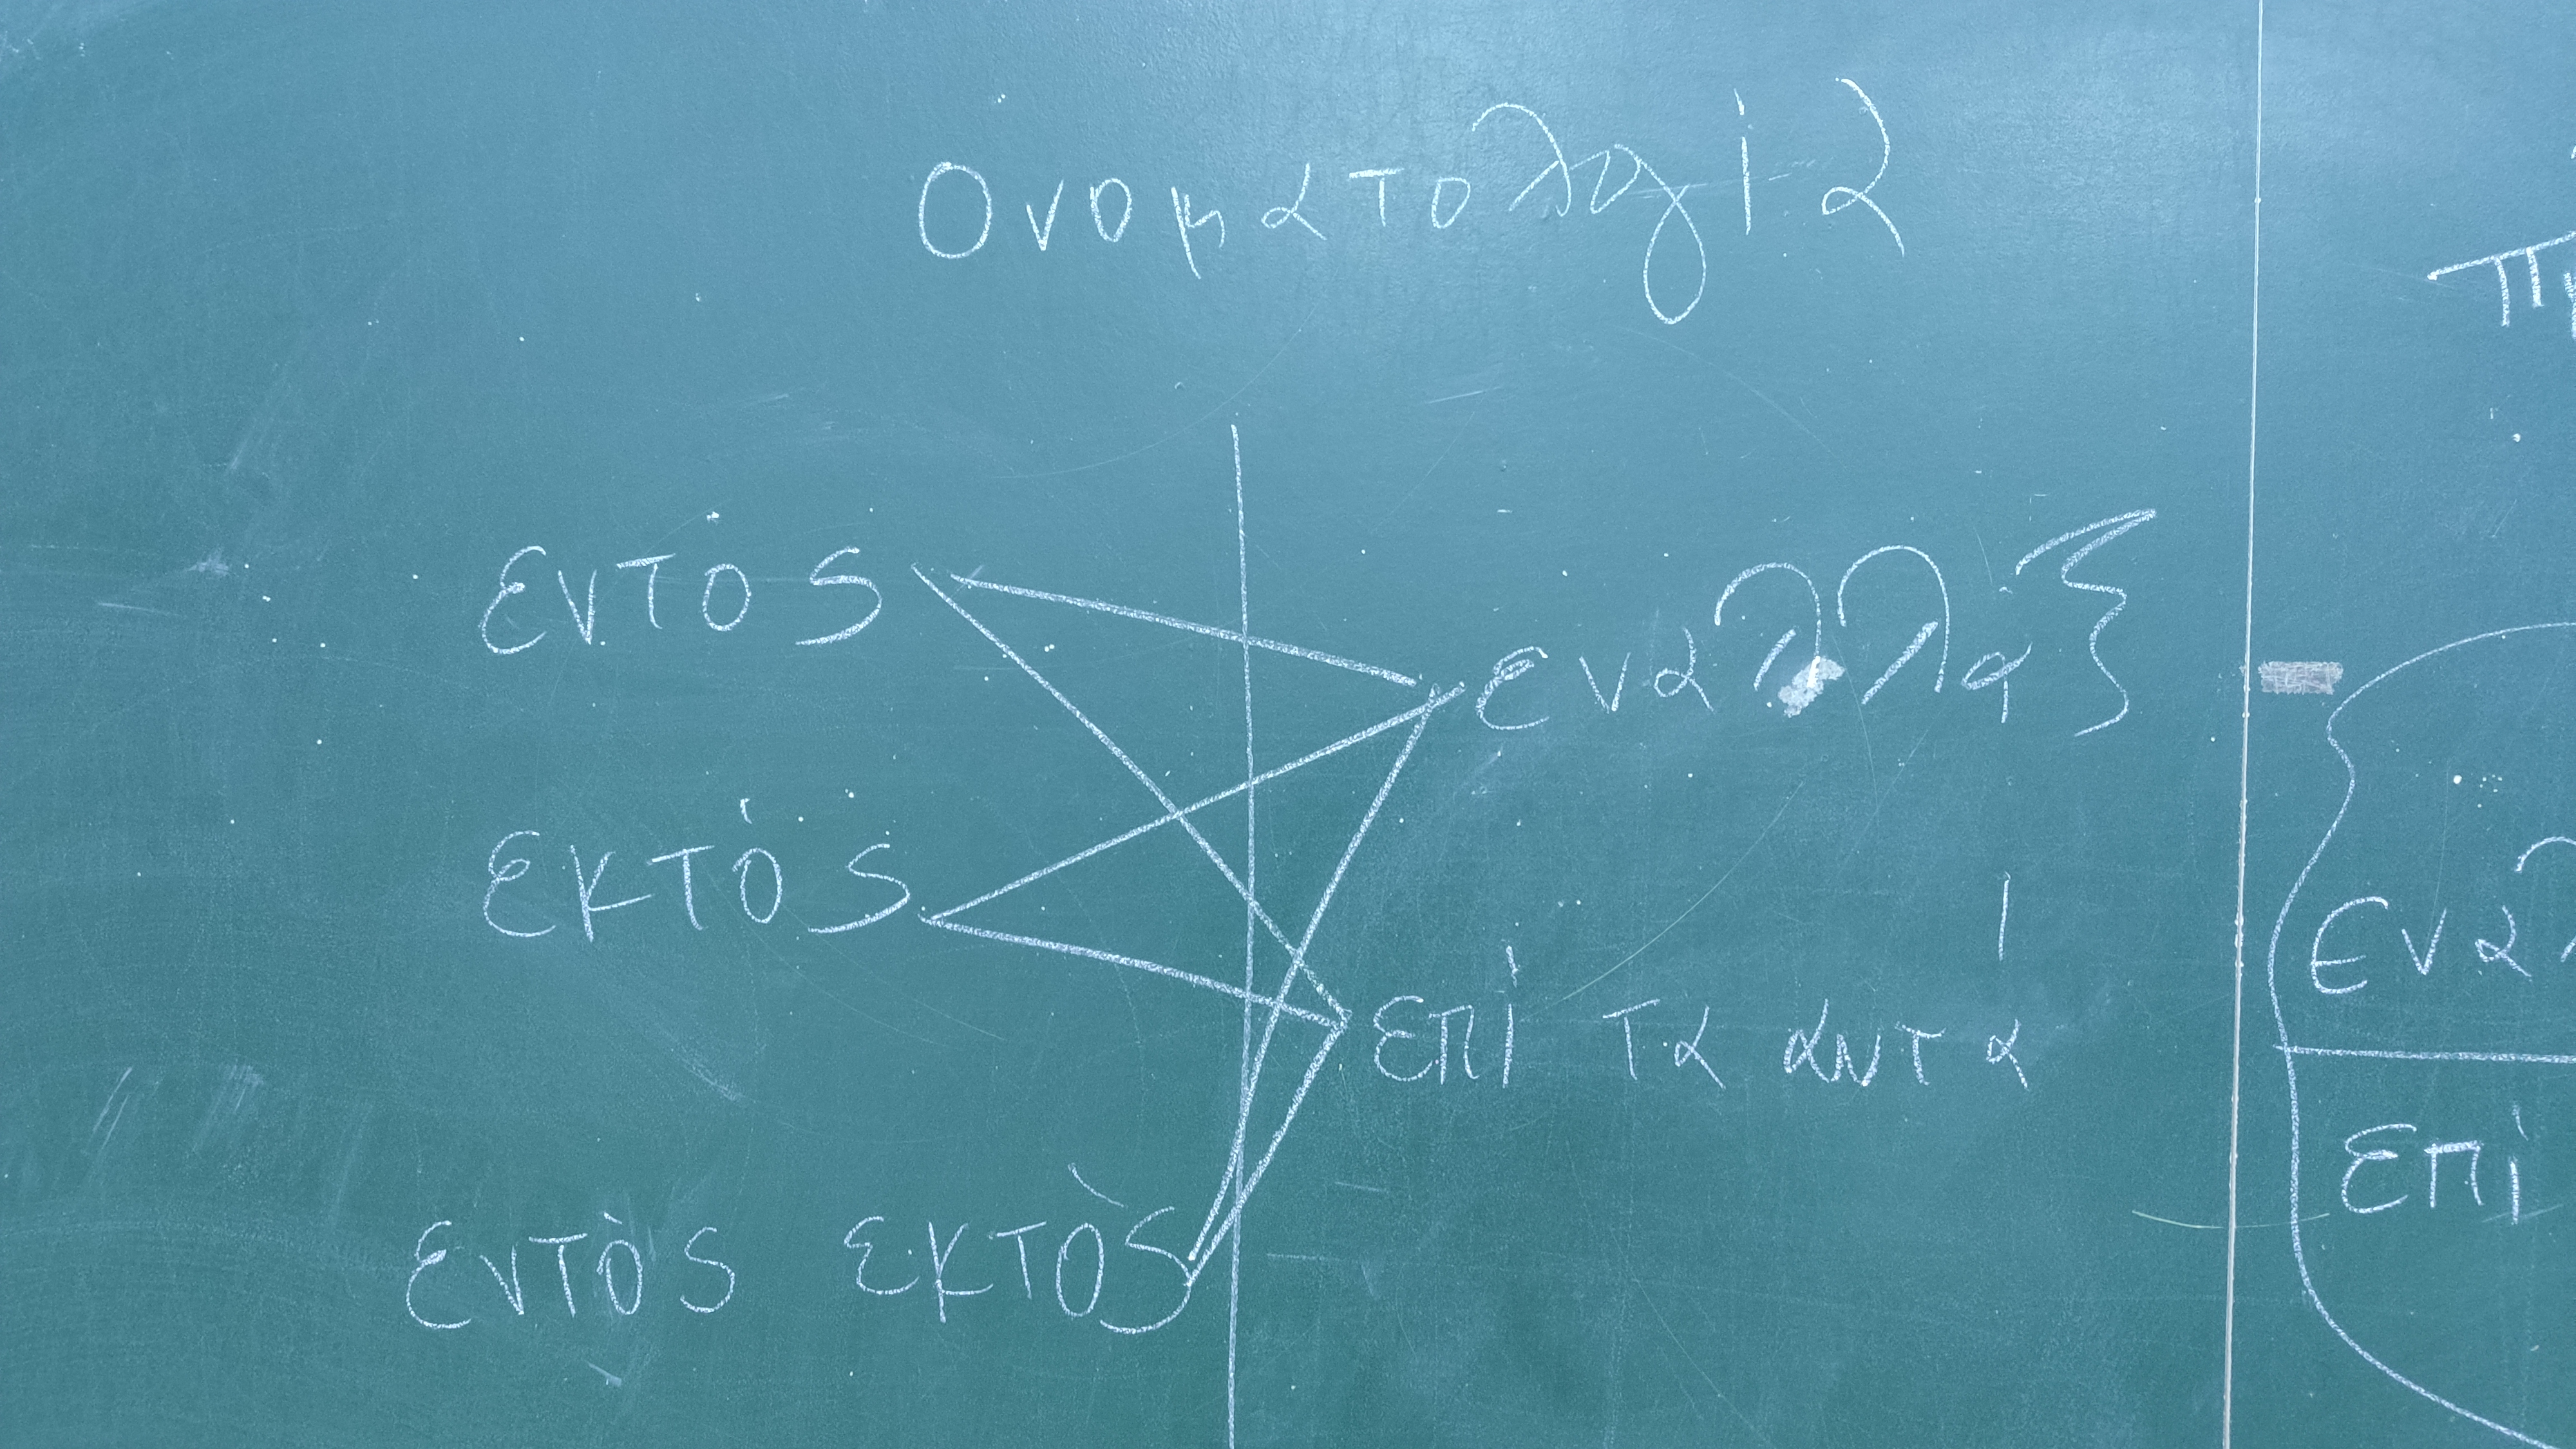 Ονοματολογία
εντός
εναλλάξ
εκτός
επί τα αυτά
εντός εκτός
επί